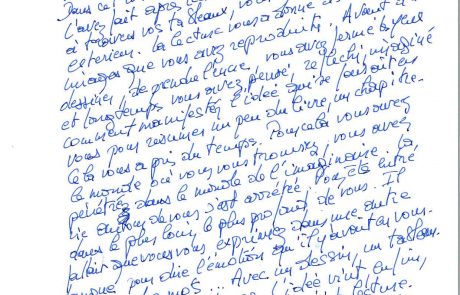 Dans ce
l'avez fait après
à travers vos tableaux, vous
exterieur. La lecture vous a donné
images que vous avez reproduits. Avant de
dessiner, de prendre l'encre, vous avez fermé les yeux
et longtemps vous avez pensé, réfléchi, imaginé
comment manifester l'idée qui se faisait en
vous pour résumer un peu du livre, un chapitre.
Cela vous a pris du temps. Pour cela vous avez
le monde où vous vous trouviez, vous avez
pénétré dans le monde de l'imaginaire. La
vie autour de vous s'est arrêtée. Vous êtes entré
dans le plus loin, le plus profond de vous. Il
fallait que vous vous exprimiez dans une autre
langue pour dire l'émotion qu'il y avait en vous.
mots... Avec un dessin, un tableau
l'idée vint enfin,
lecture.